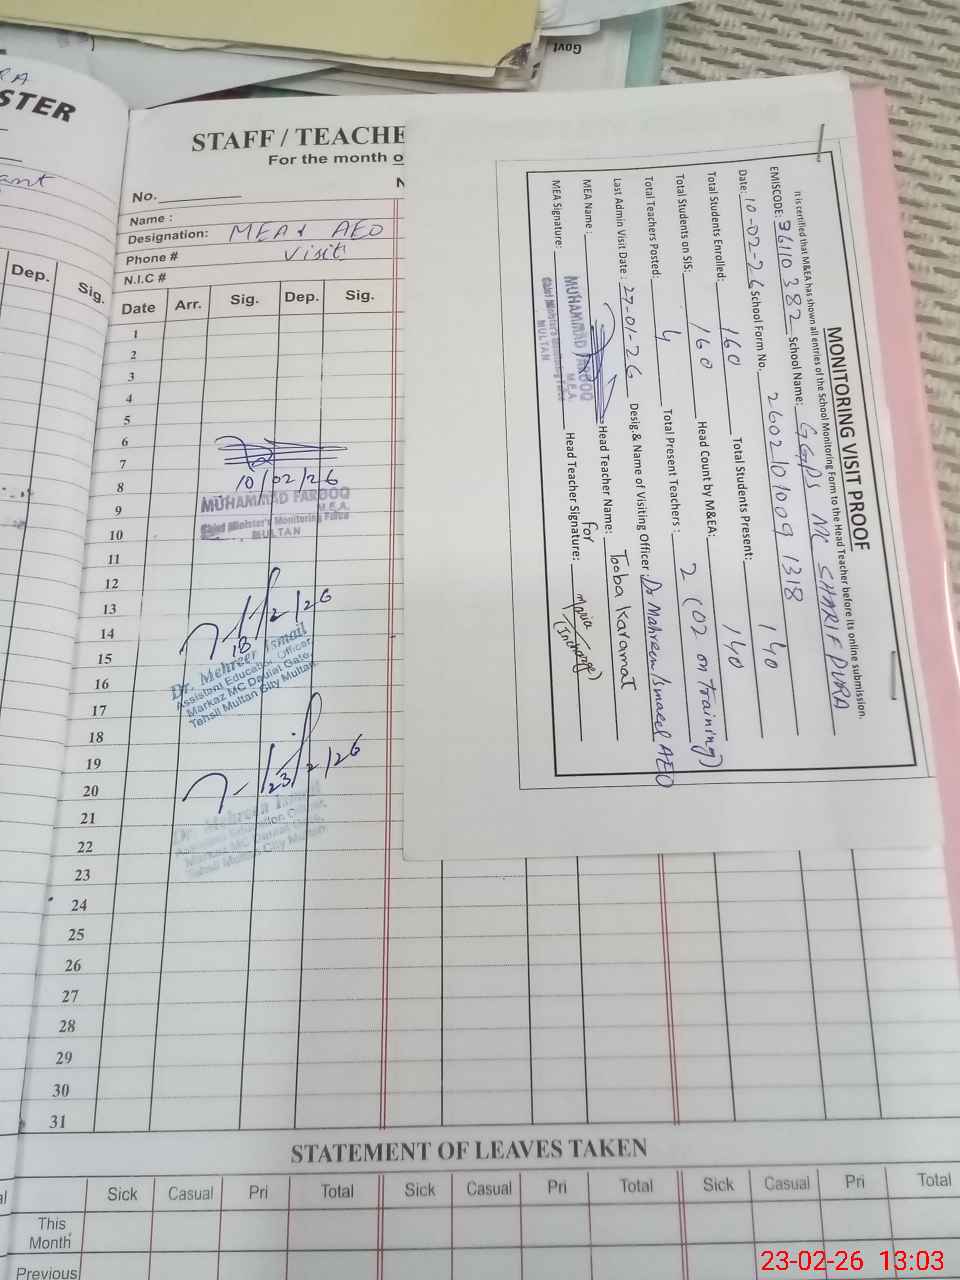 Govt
RA
STER
ant
Dep. Sig.
STAFF / TEACHE
For the month o
No.
N
Name :
Designation: MEA & AEO
Phone # Visit
N.I.C #
Date Arr. Sig. Dep. Sig.
1
2
3
4
5
6
7
8
10/02/26
9
MUHAMMAD FAROOQ
M.E.A.
10
Chief Minister's Monitoring Force
MULTAN
11
12
13
14
18/2/26
15
Dr. Mehreen Ismail
Assistant Education Officer
16
Markaz MC Daulat Gate,
Tehsil Multan City Multan.
17
18
19
20
23/2/26
21
Dr. Mehreen Ismail
Assistant Education Officer,
22
Markaz MC Daulat Gate,
Tehsil Multan City Multan
23
24
25
26
27
28
29
30
31
STATEMENT OF LEAVES TAKEN
Sick Casual Pri Total Sick Casual Pri Total Sick Casual Pri Total
This
Month
Previous
MONITORING VISIT PROOF
It is certified that M&EA has shown all entries of the School Monitoring Form to the Head Teacher before its online submission.
EMISCODE: 36110382 School Name: GGPS MC SHARIF PURA
Date: 10-02-26 School Form No. 26021010091318
Total Students Enrolled: 160 Total Students Present: 140
Total Students on SIS: 160 Head Count by M&EA: 140
Total Teachers Posted: 4 Total Present Teachers : 2 (02 on training)
Last Admin Visit Date : 27-01-26 Desig.& Name of Visiting Officer : Dr Mahreen Ismaeel AEO
MEA Name : Head Teacher Name: Tooba Karamat
MUHAMMAD FAROOQ
M.E.A.
for
MEA Signature: Head Teacher Signature: Maria
(Incharge)
Chief Minister's Monitoring Force
MULTAN
23-02-26 13:03